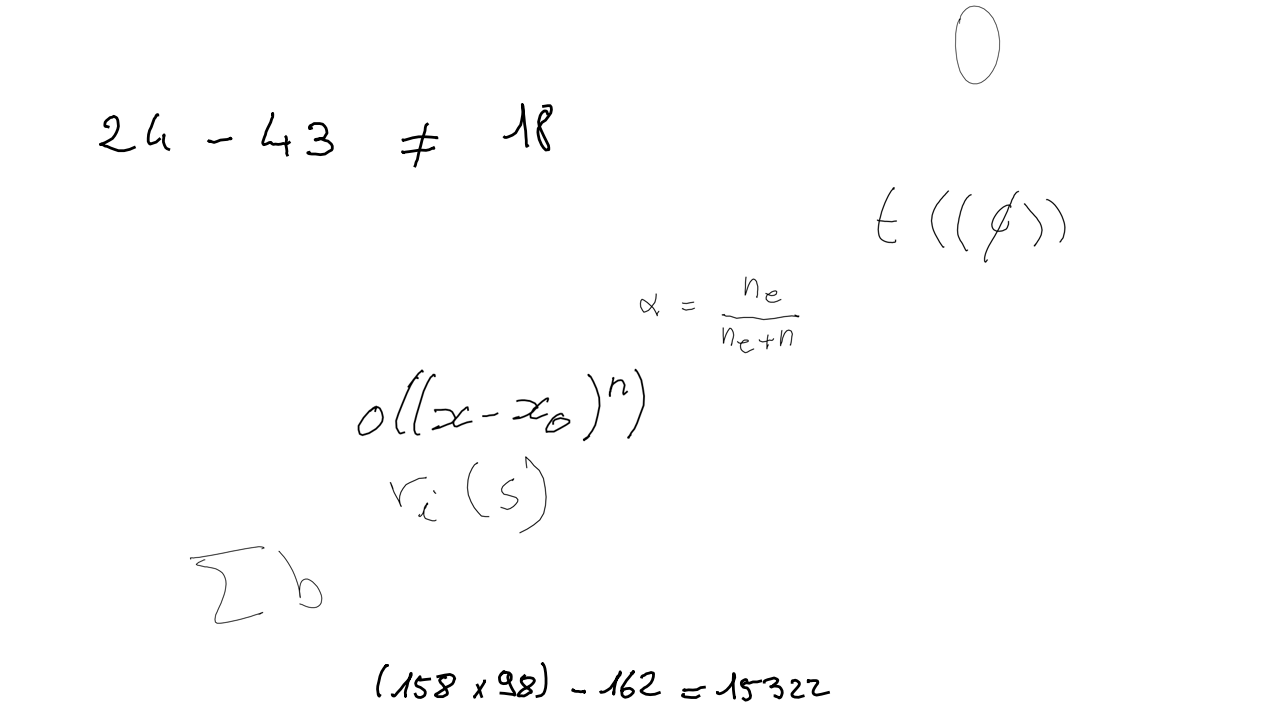 0
24 - 43 ≠ 18
t((φ))
α = n_e / (n_e + n)
o((x - x_0)^n)
r_i(s)
Σ b
(158 × 98) - 162 = 15322